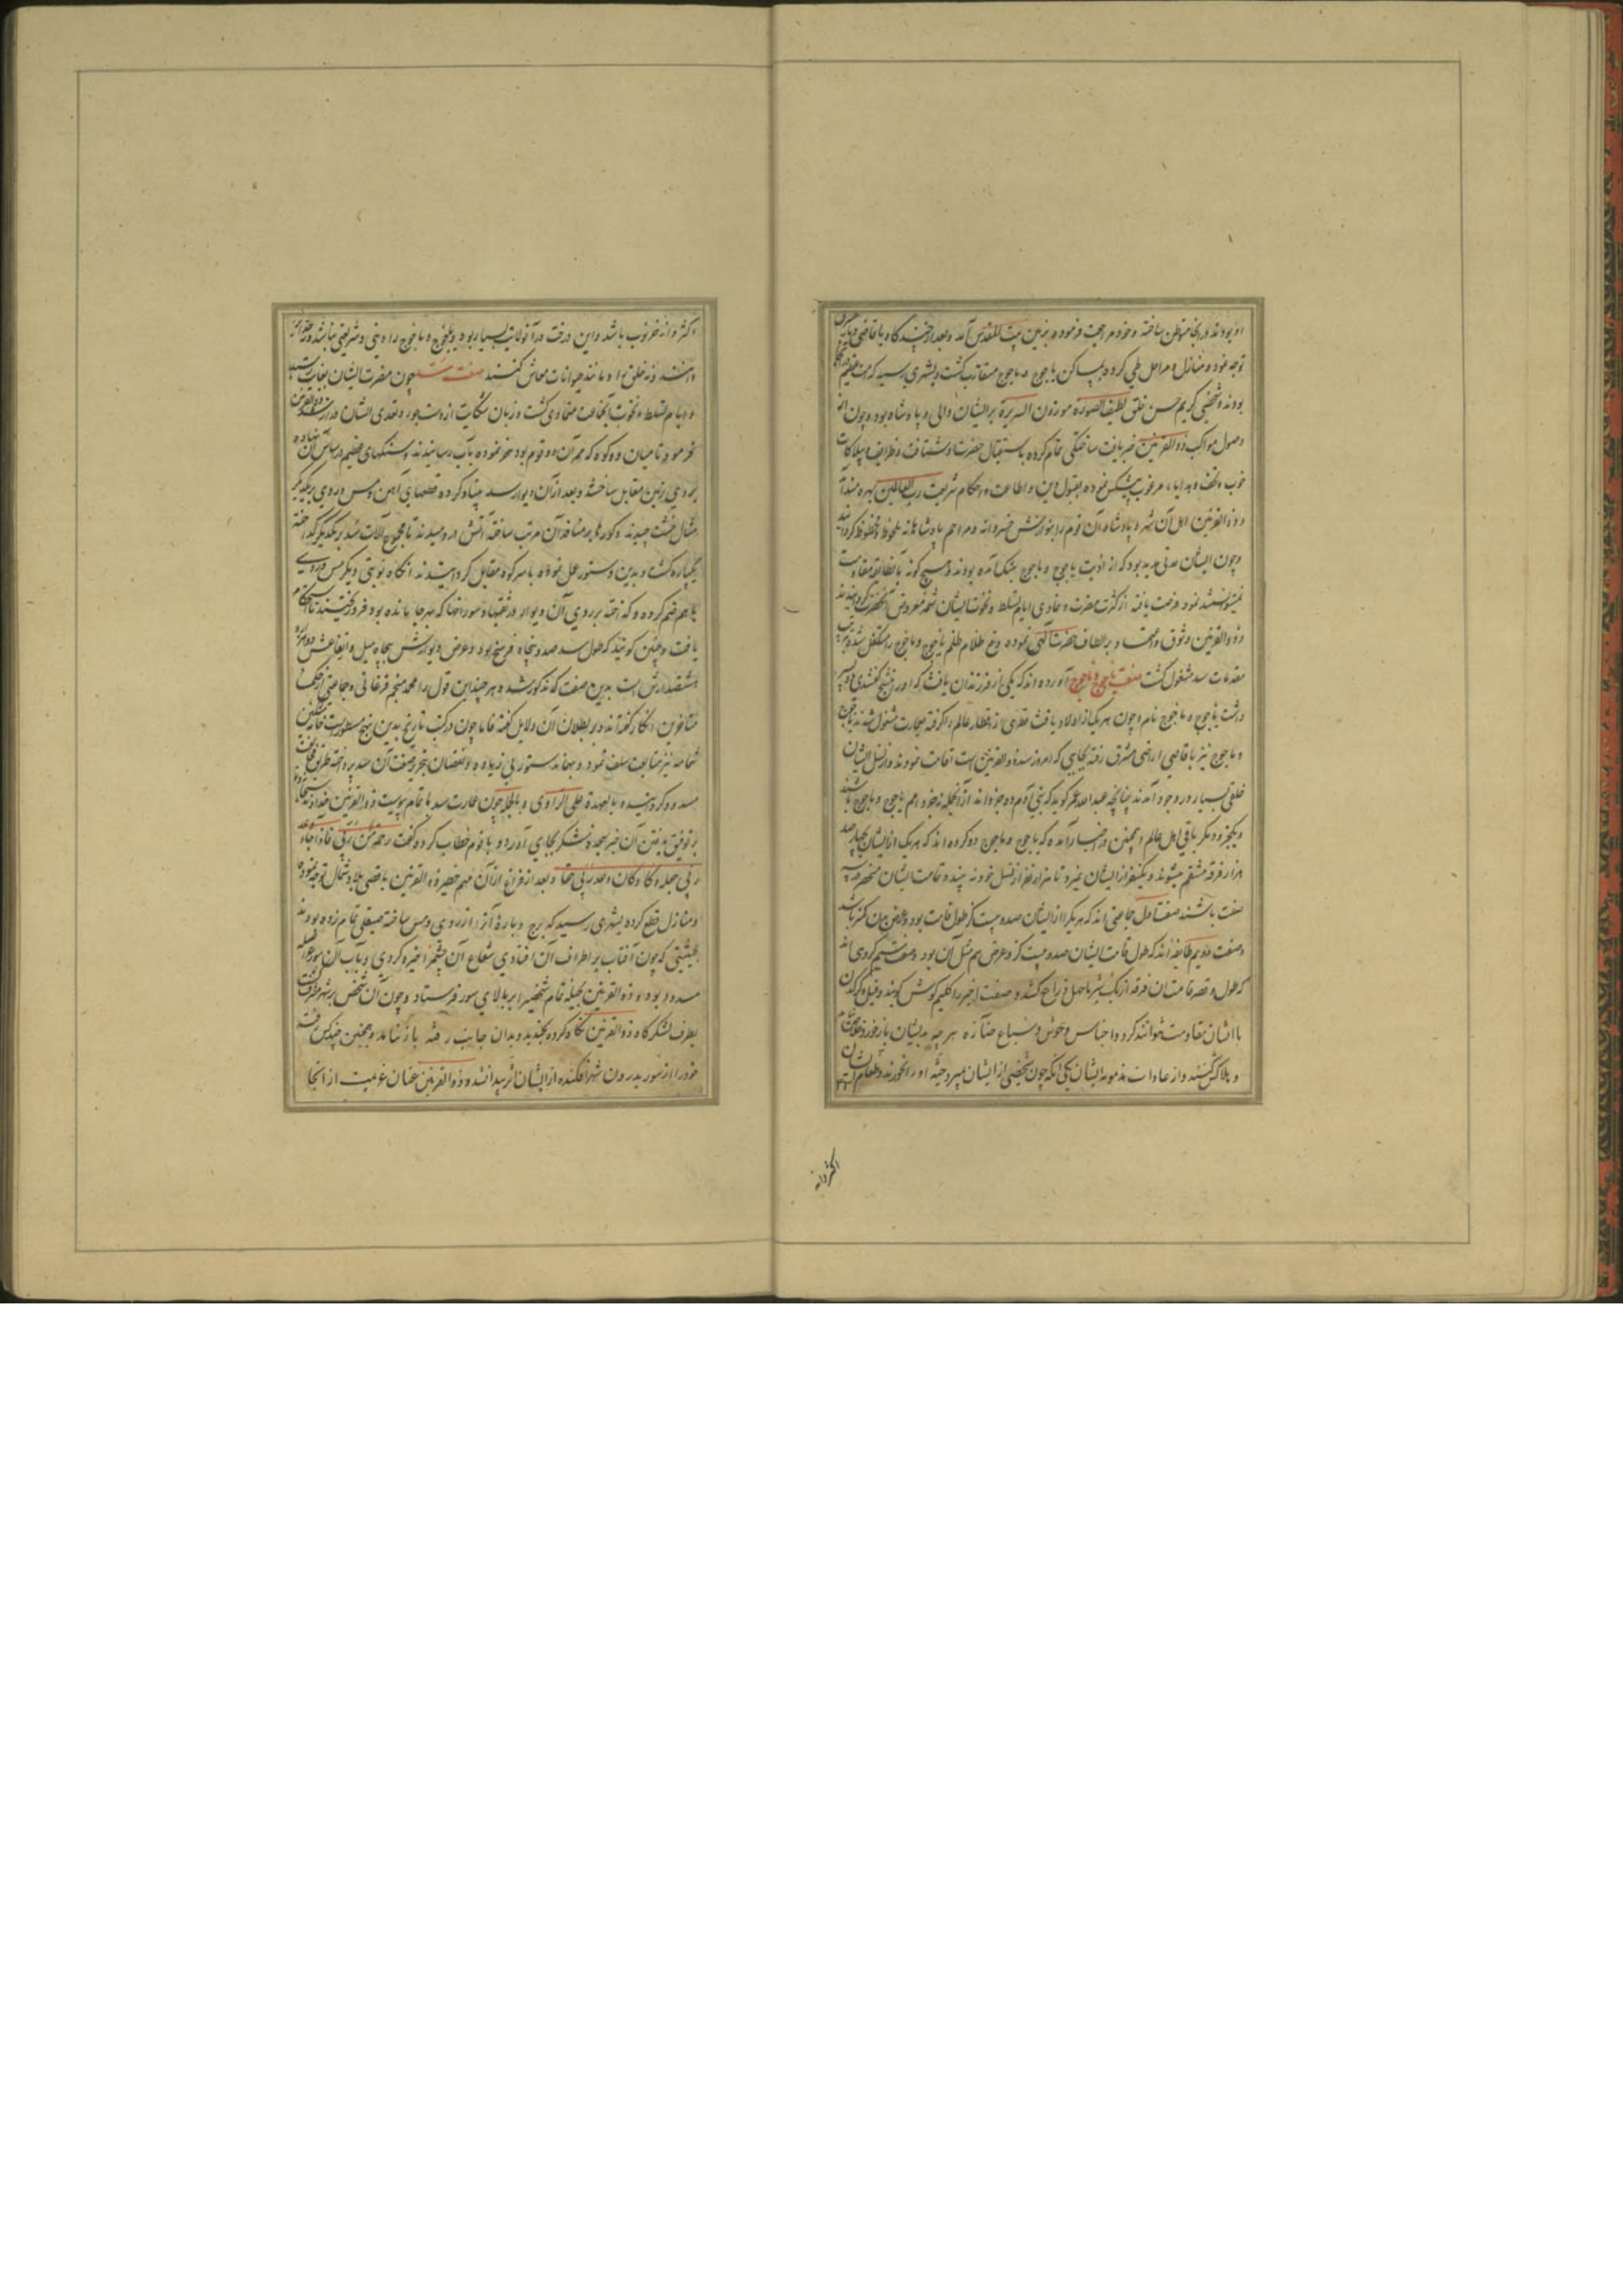 او بودند در آنجا متوطن ساخته و خود مراجعت فرموده بزمین بیت المقدس آمد و بعد از چند گاه با قاضی
توجه نمود و منازل و مراحل طی کرده بمساکن یاجوج و ماجوج متقارب گشت و بشهری رسید که امت عظیم
بودند و شخصی کریم حسن خلق لطیف الصورة موزون السریرة بر ایشان والی و پادشاه بود و چون از
وصول مواکب ذوالقرنین خبر یافت ساختگی تمام کرده باستقبال حضرت او شتافت و ظرایف
خوب و تحف و هدایاء مرغوب پیشکش نموده بقبول دین و اطاعت احکام شریعت رب العالمین بهره مند آمد
و ذوالقرنین اهل آن شهر و پادشاه آن قوم را بنوازش خسروانه و مراحم پادشاهانه ملحوظ و محظوظ گردانید
و چون ایشان مدتی مدید بود که از اذیت یاجوج و ماجوج بتنگ آمده بودند و هیچ گونه با آن طایفه مقاومت
نمیتوانستند نمود فرصت یافته از کثرت مضرت و تمادی ایام تسلط و نخوت ایشان شمه معروض آنحضرت گردانیدند
و ذوالقرنین وثوق و اعتماد بر الطاف حضرت الهی نموده دفع ظلام ظلم یاجوج و ماجوج را متکفل شد و بترتیب
مقدمات سد مشغول گشت صفت یاجوج و ماجوج آورده اند که یکی از فرزندان یافث که او را منسج گفتندی دو پسر
داشت یاجوج و ماجوج نام و چون هر یک از اولاد یافث قطری از اقطار عالم را گرفته بعمارت مشغول شدند یاجوج
و ماجوج نیز باقاصی اراضی مشرق رفته بجایی که امروز سد ذوالقرنین است اقامت نمودند و از نسل ایشان
خلقی بسیار در وجود آمدند چنانچه عبدالله عمر گوید که بنی آدم ده جزو اند از آنجمله نه جزو امم یاجوج و ماجوج باشند
و یکجزو دیگر باقی اهل عالم و همچنین در اخبار آمده که یاجوج و ماجوج دو گروه اند که هر یک از ایشان بچهار صد
هزار فرقه منقسم میشوند و یکنفر از ایشان نمیرد تا هزار نفر از نسل خود نه بیند و قامت ایشان منحصر بسه
صفت باشند صنف اول جماعتی اند که هر یک را از ایشان صد و بیست گز طول قامت بود و عرض بدن کمتر باشد
و صنف دویم طایفه اند که طول قامت ایشان صد و بیست گز و عرض هم مثل آن بود و صنف سیم گروهی اند
که طول و قصر قامت آن فرقه از یک شبر تا چهل ذراع کشد و صنف اخیر را گلیم گوش گویند و فیل و کرگدن
با ایشان مقاومت نتوانند کرد و اجناس وحوش و سباع جنازه هر چه بدیشان باز خورد
و هلاک کنند و از عادات مذمومه ایشان یکی آنکه چون شخصی از ایشان بمیرد جثه او را بخورند و طعام ایشان
اکثر دانه
اکثر دانه خرنوب باشد و این درخت در آن ولایت بسیار بود و یاجوج و ماجوج را دینی و شریعتی نباشد
نه خلق را و مانند حیوانات معاش کنند صفت سد چون مضرت ایشان بغایت رسید
و ایام تسلط و نخوت آنجماعت متمادی گشت و زبان شکایت از دست جور و تعدی ایشان دراز شد ذوالقرنین
فرمود تا میان دو کوه که ممر آن دو قوم بود حفر نموده بآب رسانیدند و سنگهای عظیم در اساس آن نهاده
بروی زمین مقابل ساختند و بعد از آن دیوار سد بنیاد کرده قطعهای آهن و مس و روی بر یکدیگر
مثال خشت چیدند و کورها بر مسافه آن مرتب ساخته آتش در دمیدند تا مجموع آلات سد بر یکدیگر گداخته
یکپاره گشت و بدین دستور عمل نموده با سر کوه مقابل گردانیدند آنگاه نوبتی دیگر مس و روی
با هم ضم کرده و گداخته بر روی آن دیوار و در ثقبها و سوراخها که هر جا مانده بود فرو ریختند تا استحکام
یافت و چنین گویند که طول سد صد و پنجاه فرسخ بود و عرض دیوارش پنجاه میل و ارتفاعش
بدین صفت که مذکور شد و هر چند این قول را محمد منجم فرغانی و جماعتی از حکما
متأخرین انکار کرده اند و بر بطلان آن دلایل گفته فاما چون در کتب تاریخ بدین نهج مسطور است خامه مشکین
شمامه نیز متابعت سلف نمود و بهمان دستور بی زیاده و نقصان بتحریر صفت آن سد پرداخته طریق مخالفت
مسدود گردانیده باشد و العهدة علی الراوی و بالجمله چون عمارت سد باتمام پیوست ذوالقرنین خداوند سبحانه را
بر توفیق یافتن آن خیر سجده شکر بجای آورد و با قوم خطاب کرده گفت رحمة من ربی فاذا جاء وعد
ربی جعله دکا و کان وعد ربی حقا و بعد از فراغ از آن مهم خطیر ذوالقرنین باقصی بلاد شمال توجه نموده
و منازل قطع کرده بشهری رسید که برج و باره آنرا از روی و مس ساخته صیقلی تمام زده بودند
بحیثیتی که چون آفتاب بر اطراف آن افتادی شعاع آن چشم را خیره کردی و باب آن سور
مسدود بود و ذوالقرنین بحیله تمام شخصی را ببالای سور فرستاد و چون آن شخص بر شهر مشرف گشت
بطرف لشکرگاه ذوالقرنین نگاه کرده بخندید و بدان جانب رفته باز نیامد و همچنین چند کس رفته
خود را از سور بدرون شهر افکنده از ایشان اثر پیدا نشد و ذوالقرنین عنان عزیمت از آنجا